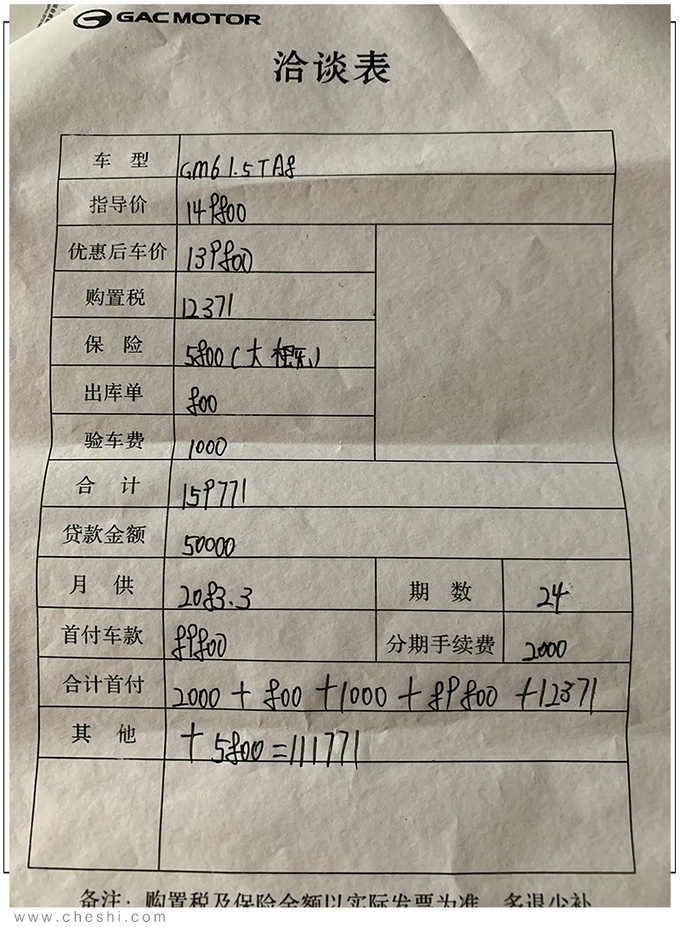 GAC MOTOR
洽谈表
车型 GM6 1.5TA8
指导价 149800
优惠后车价 139800
购置税 12371
保险 5800(大概)
出库单 800
验车费 1000
合计 159771
贷款金额 50000
月供 2083.3 期数 24
首付车款 89800 分期手续费 2000
合计首付 2000+800+1000+89800+12371
其他 +5800=111771
备注:购置税及保险金额以实际发票为准,多退少补
www.cheshi.com